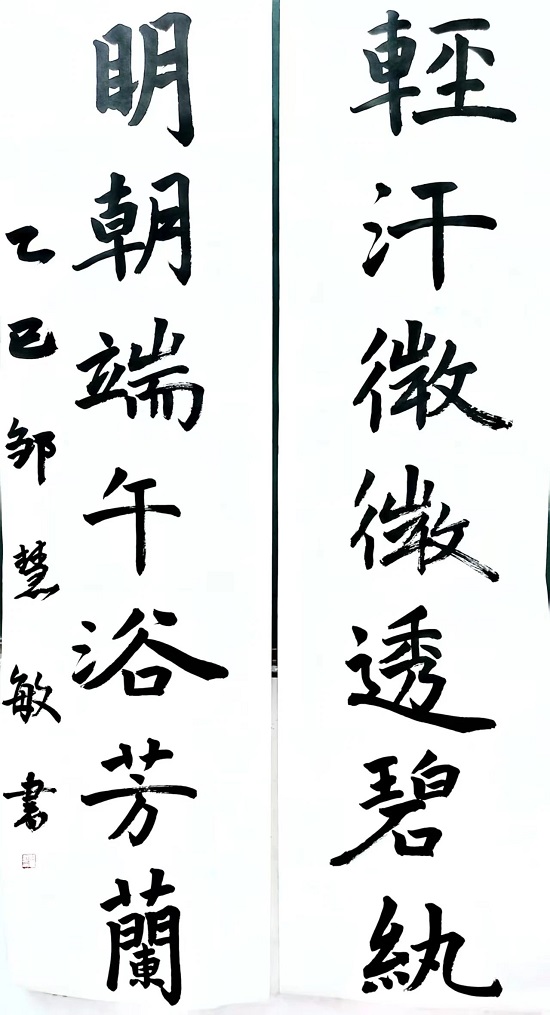 輕汗微微透碧紈
明朝端午浴芳蘭
乙巳鄒慧敏書